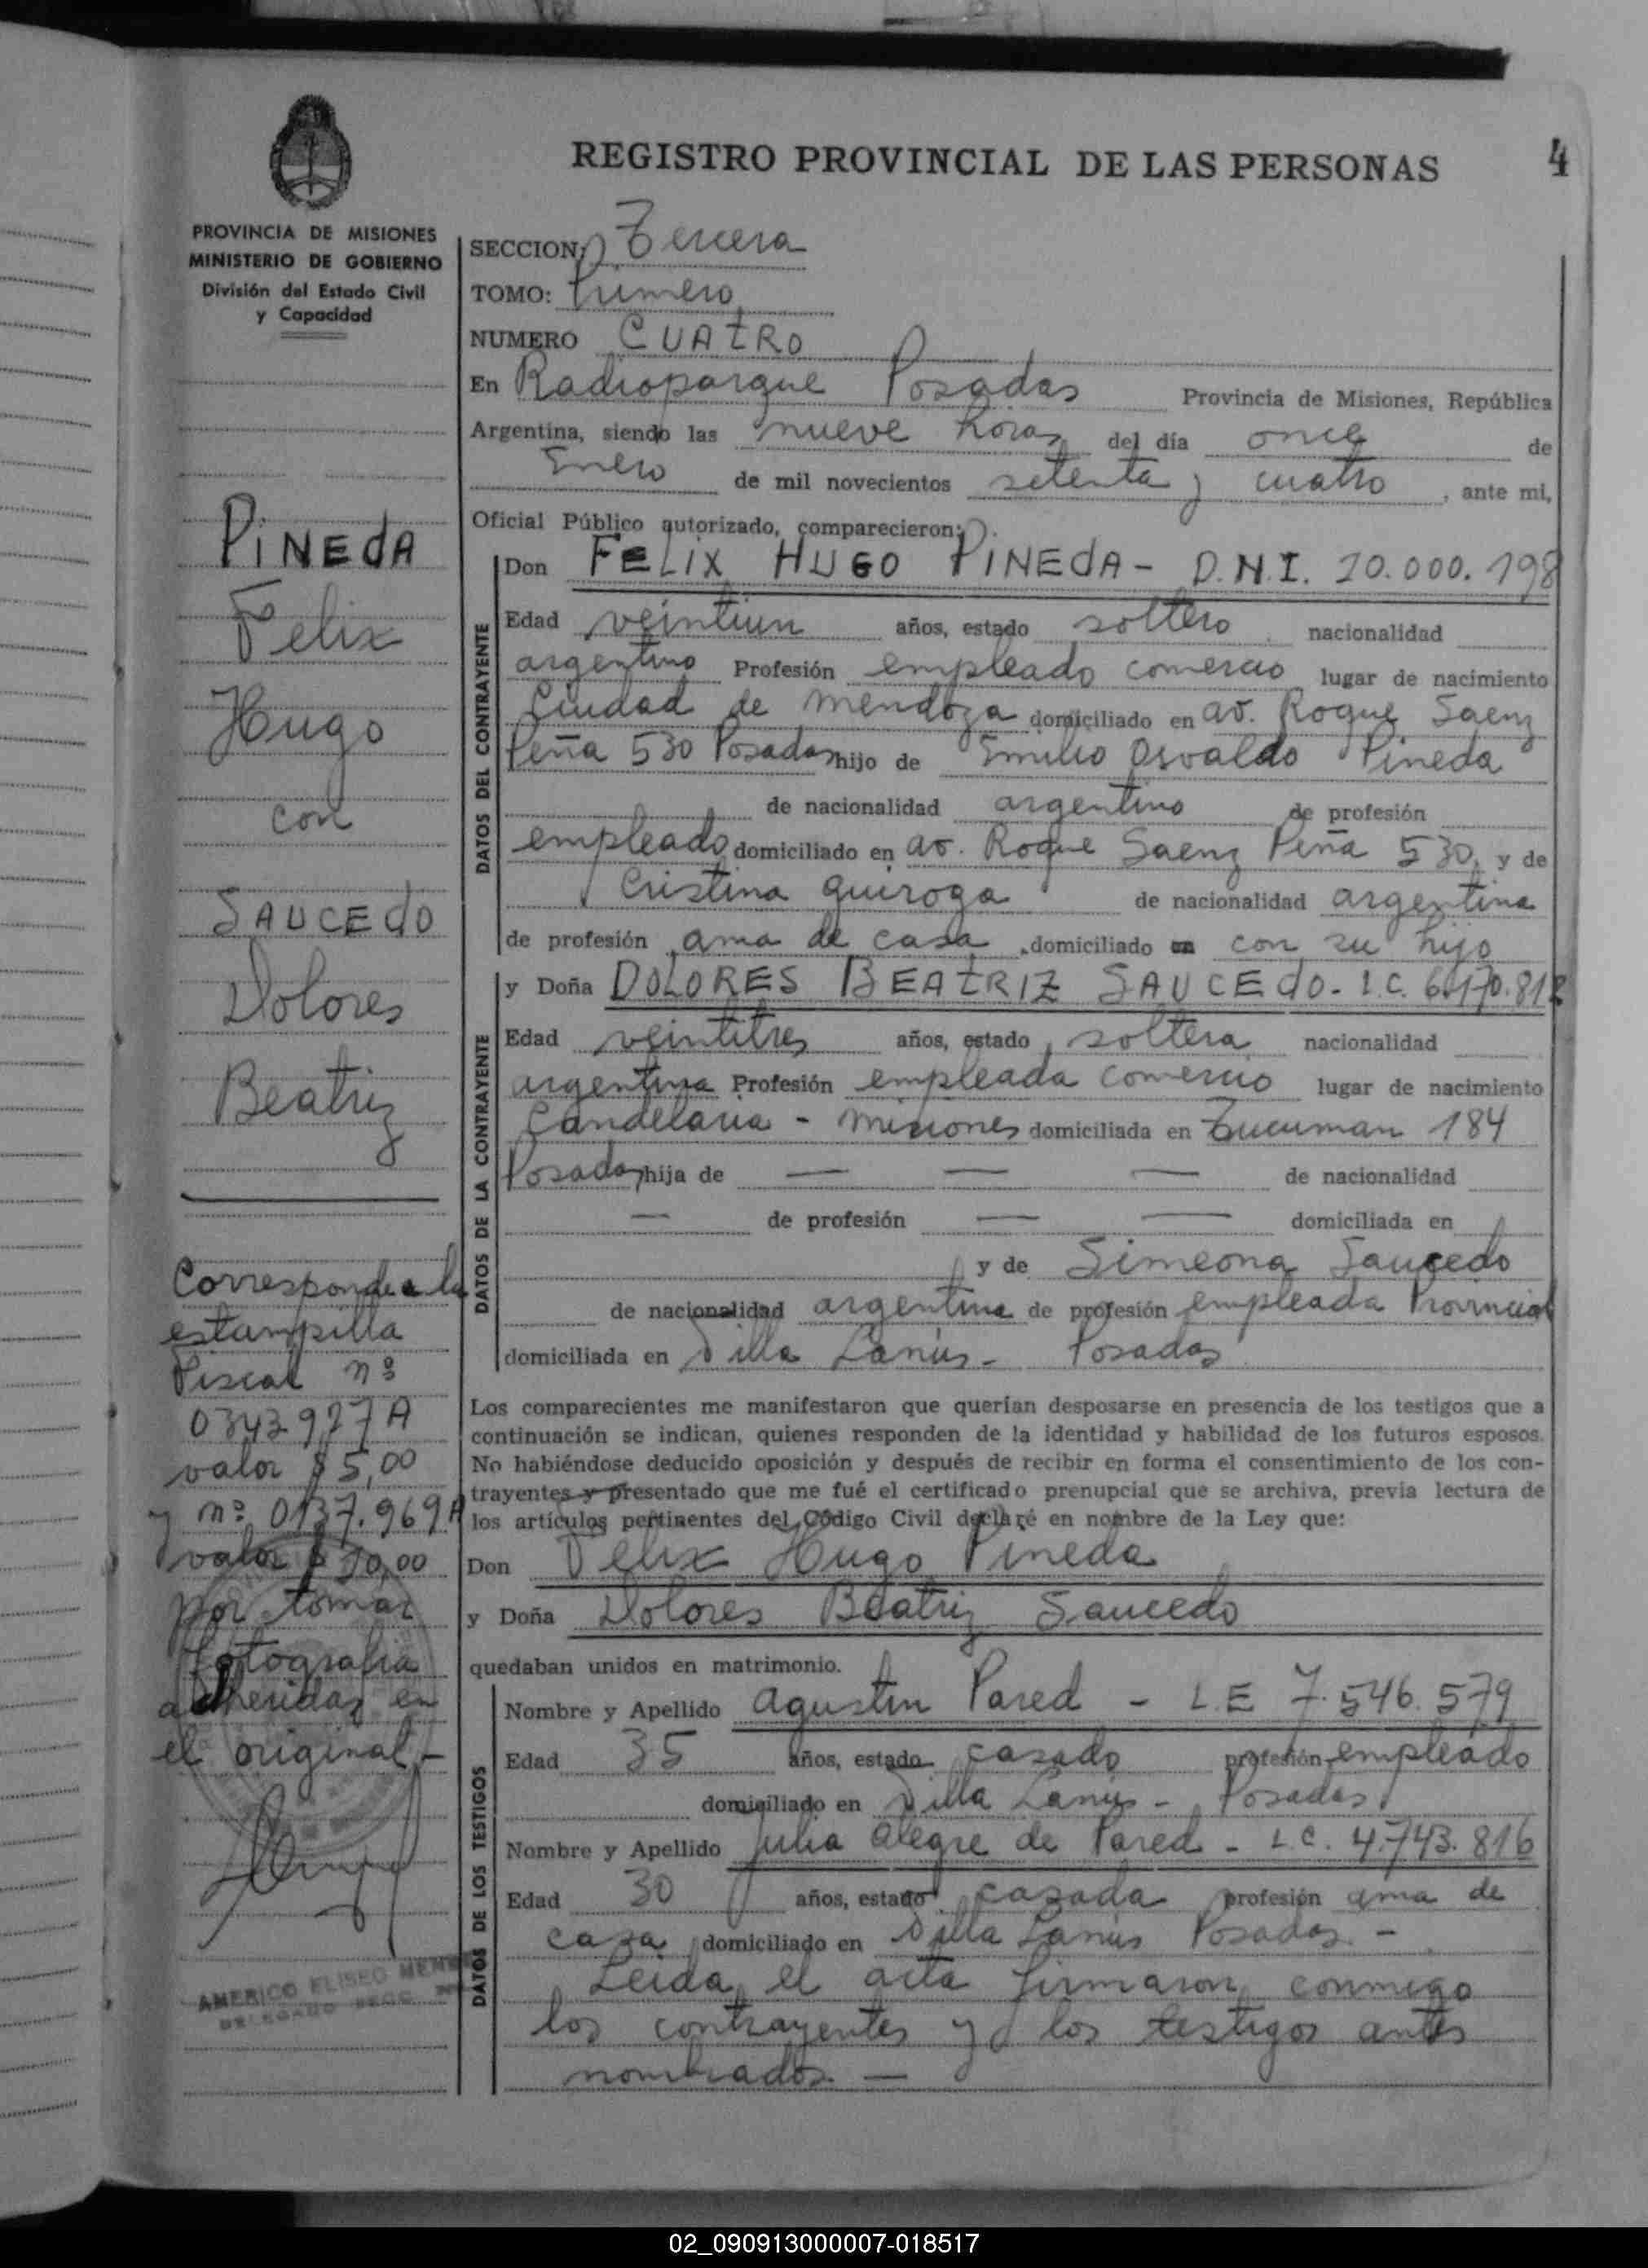 REGISTRO PROVINCIAL DE LAS PERSONAS
4
PROVINCIA DE MISIONES
MINISTERIO DE GOBIERNO
División del Estado Civil
y Capacidad
PINEdA
Felix
Hugo
con
SAUCEdO
Dolores
Beatriz
Corresponde a la
estampilla
Fiscal nº
0343927A
valor $ 5,00
y nº 0137.969A
valor $ 10,00
por tomar
fotografia
adheridas en
el original.-
AMERICO ELISEO
DELEGADO
SECCION: Tercera
TOMO: Primero
NUMERO CUATRO
En Radioparque Posadas Provincia de Misiones, República
Argentina, siendo las nueve horas del día once de
Enero de mil novecientos setenta y cuatro, ante mi,
Oficial Público autorizado, comparecieron:
DATOS DEL CONTRAYENTE
Don FELIX HUGO PINEdA - D.N.I. 10.000.198
Edad veintiun años, estado soltero nacionalidad
argentino Profesión empleado comercio lugar de nacimiento
Ciudad de Mendoza domiciliado en av. Roque Saenz
Peña 530 Posadas hijo de Emilio Osvaldo Pineda
de nacionalidad argentino de profesión
empleado domiciliado en av. Roque Saenz Peña 530, y de
Cristina Quiroga de nacionalidad argentina
de profesión ama de casa, domiciliado en con su hijo
DATOS DE LA CONTRAYENTE
y Doña DOLORES BEATRIZ SAUCEdO - L.C. 6.170.812
Edad veintitres años, estado soltera nacionalidad
argentina Profesión empleada comercio lugar de nacimiento
Candelaria - Misiones domiciliada en Tucuman 184
Posadas hija de — — — de nacionalidad
— de profesión — — domiciliada en
y de Simeona Saucedo
de nacionalidad argentina de profesión empleada Provincial
domiciliada en Villa Lanús - Posadas
Los comparecientes me manifestaron que querían desposarse en presencia de los testigos que a
continuación se indican, quienes responden de la identidad y habilidad de los futuros esposos.
No habiéndose deducido oposición y después de recibir en forma el consentimiento de los con-
trayentes y presentado que me fué el certificado prenupcial que se archiva, previa lectura de
los artículos pertinentes del Código Civil declaré en nombre de la Ley que:
Don Felix Hugo Pineda
y Doña Dolores Beatriz Saucedo
quedaban unidos en matrimonio.
DATOS DE LOS TESTIGOS
Nombre y Apellido Agustin Pared - L.E 7.546.579
Edad 35 años, estado casado profesión empleado
domiciliado en Villa Lanús - Posadas
Nombre y Apellido Julia Alegre de Pared - L.C. 4.743.816
Edad 30 años, estado casada profesión ama de
casa domiciliado en Villa Lanús Posadas -
Leida el acta firmaron conmigo
los contrayentes y los testigos antes
nombrados. —
02_090913000007-018517